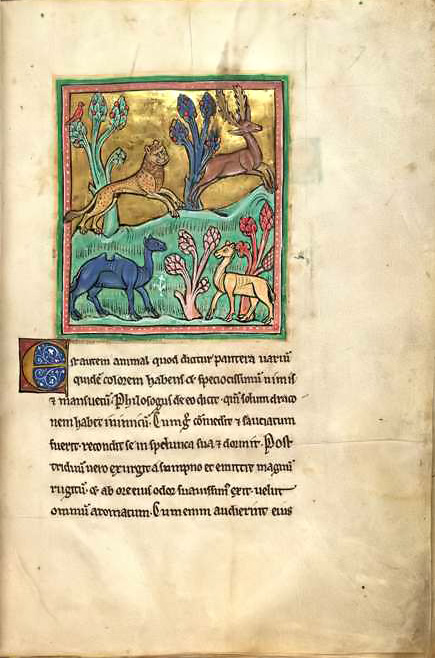 Est autem animal quod dicitur pantera uariū
quidē colorem habens et speciosissimū nimis
⁊ mansuetū. Philosogus de eo dicit. qm̄ solum draco
nem habet inimicū. Cum g̊ comederit ⁊ saciatum
fuerit. recondit se in spelunca sua ⁊ dormit. Post
triduū uero exurgit a sumpno et emittit magnū
rugitū. et ab ore eius odor suauissim᷒ exit. uelut
omniū aromatum. Cum enim audierint eius